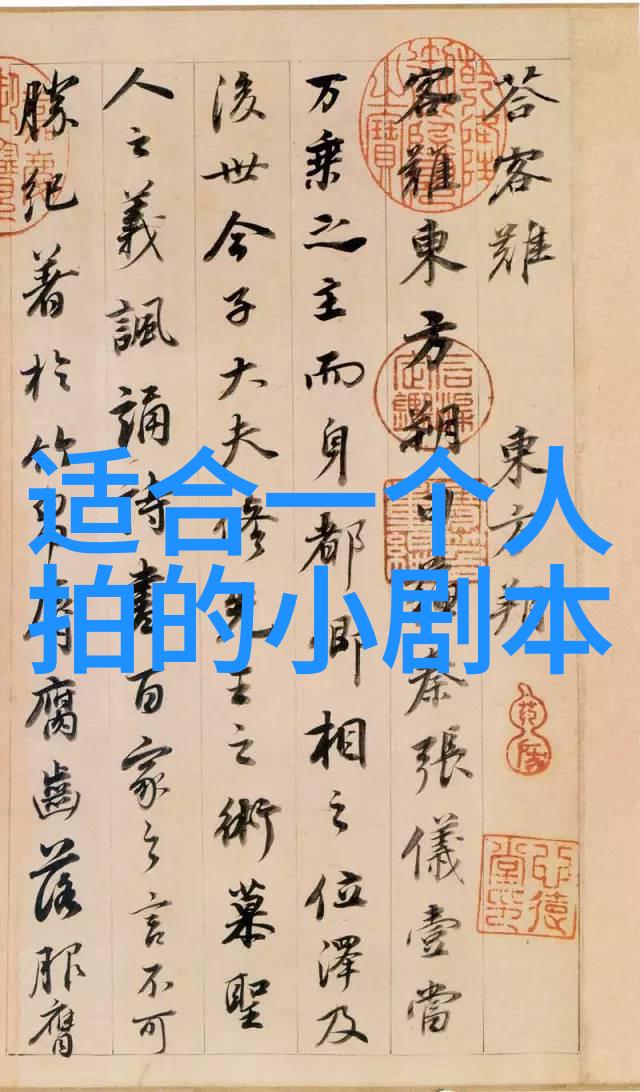 适合一个人
拍的小剧本
荅客難 東方朔
客難東方朔曰蘇秦張儀壹當
万乘之主而身都卿相之位澤及
後世今子大夫修先王之術慕聖
人之義諷誦詩書百家之言不可
勝紀著於竹帛脣腐齒落服膺